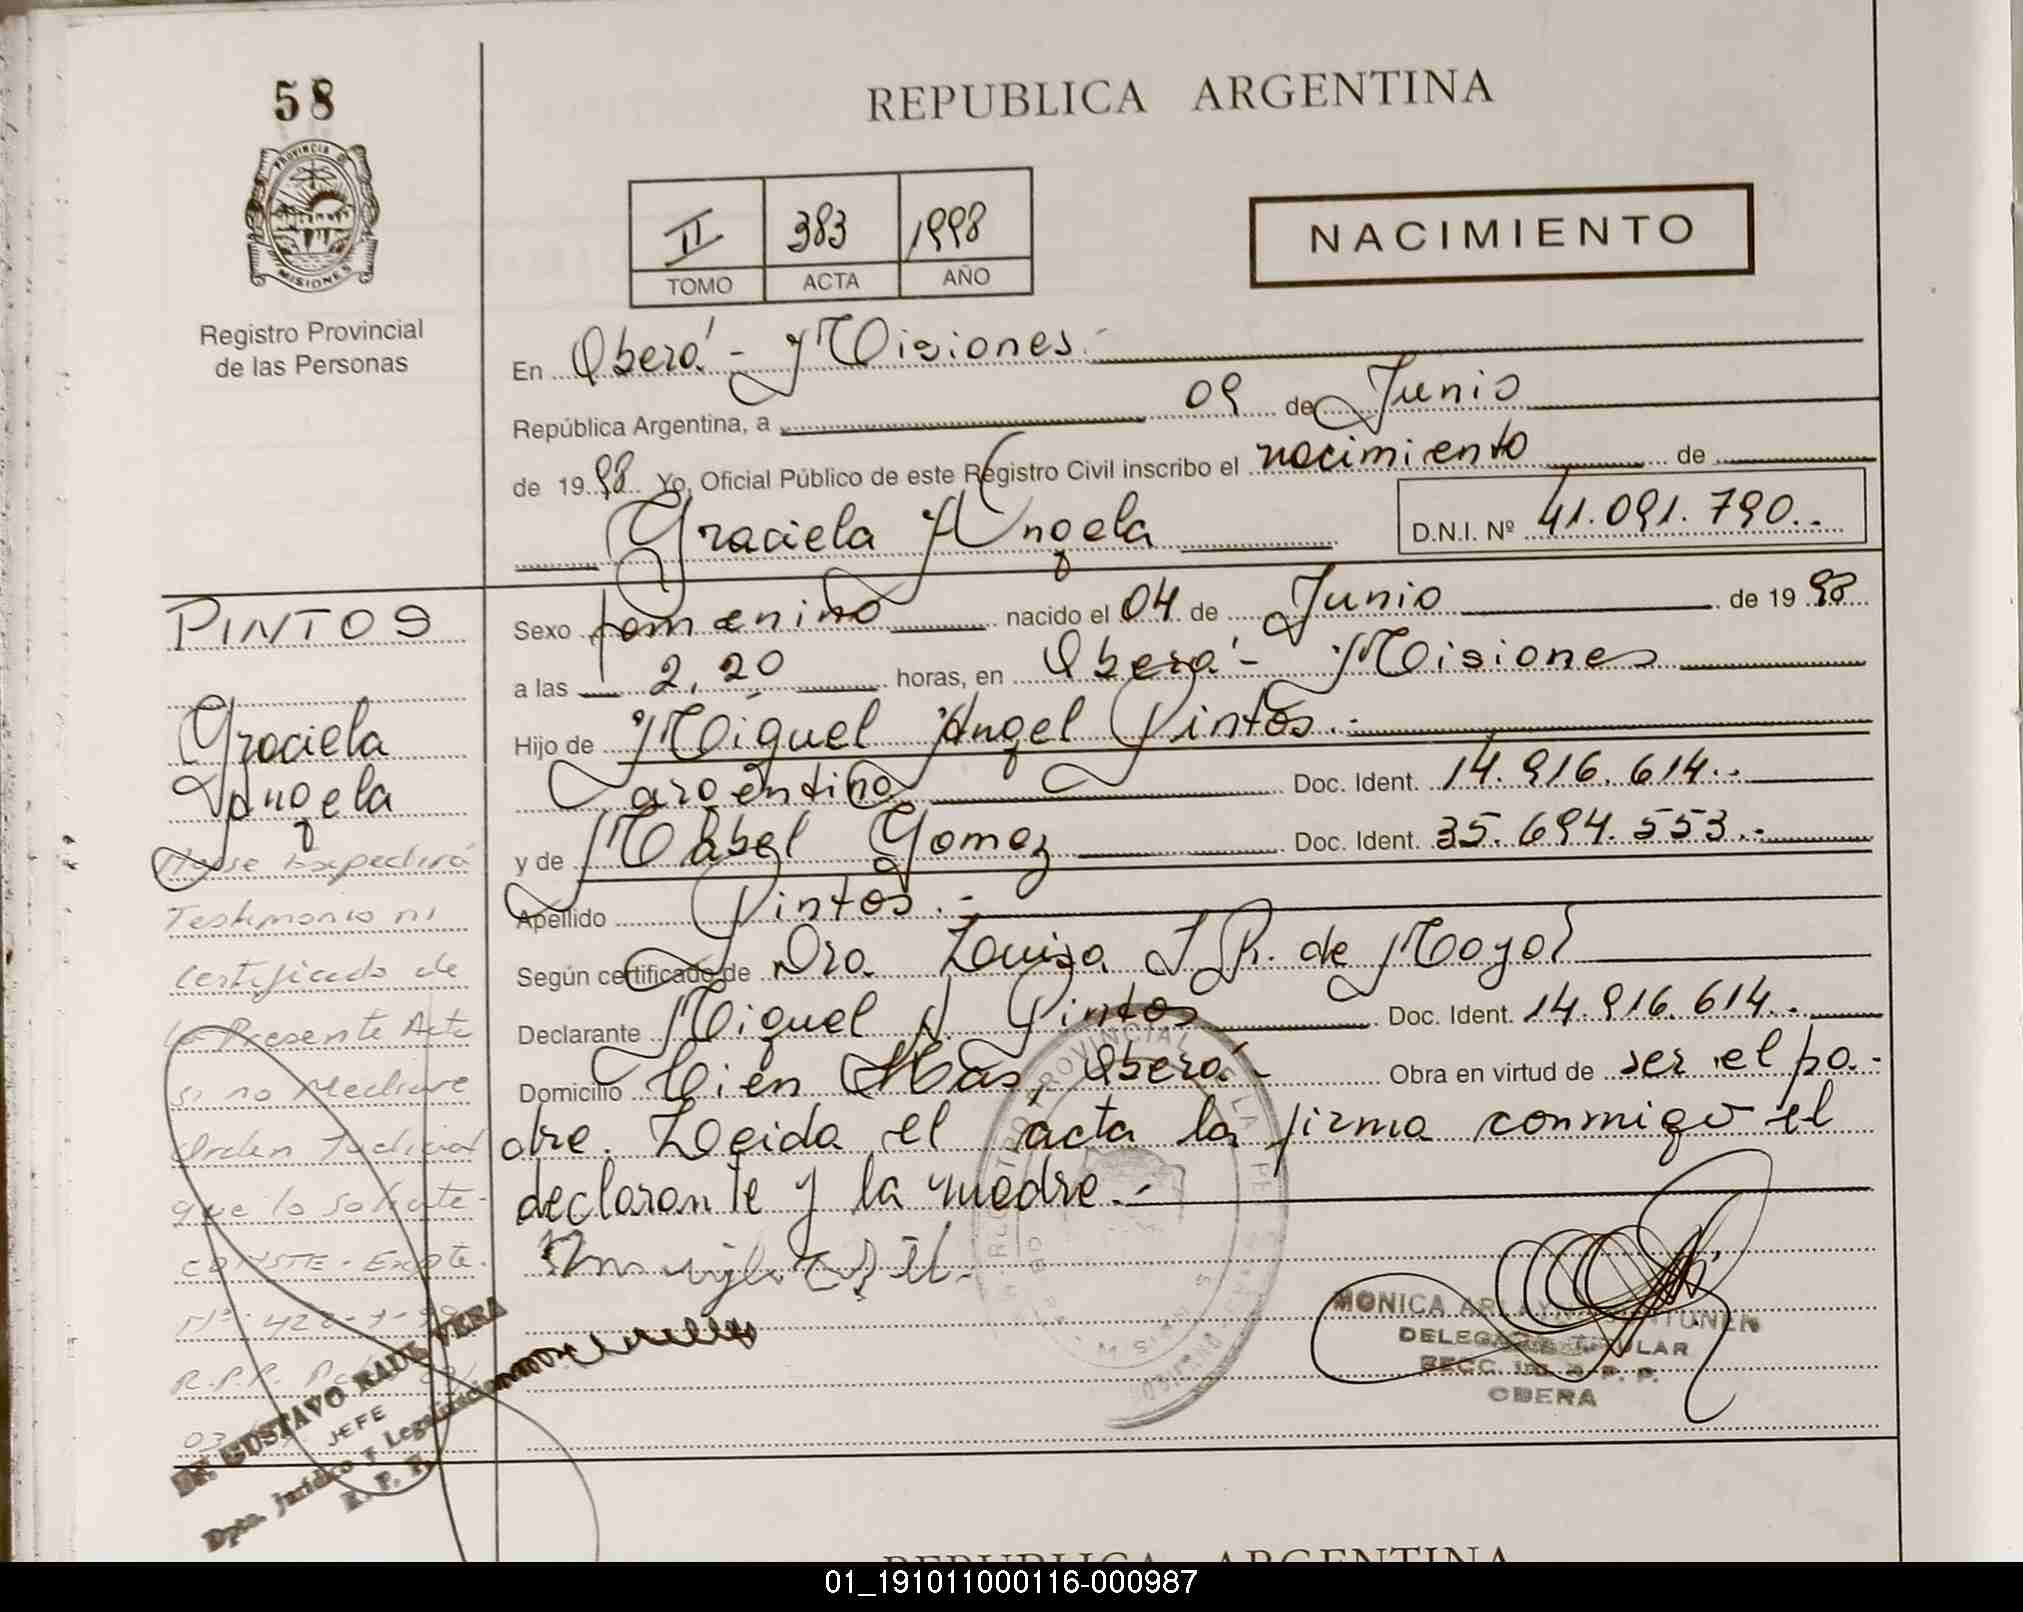 58
PROVINCIA DE
MISIONES
Registro Provincial
de las Personas
REPUBLICA ARGENTINA
II 383 1998
TOMO ACTA AÑO
NACIMIENTO
En Oberá - Misiones.-
República Argentina, a 09 de Junio
de 1998 Yo, Oficial Público de este Registro Civil inscribo el nacimiento de
Graciela Angela
D.N.I. Nº 41.091.790..
PINTOS
Graciela
Angela
No se expedirá
Testimonio ni
certificado de
la Presente Acta
si no Mediare
Orden Judicial
que lo solicite-
CONSTE- Expte.
Nº 422-
R.P.P.
Dr. GUSTAVO RAUL VERA
JEFE
Dpto. Jurídico y Legalizaciones
R. P. P.
Sexo femenino nacido el 04 de Junio de 1998
a las 2,20 horas, en Oberá - Misiones
Hijo de Miguel Angel Pintos.-
argentino Doc. Ident. 14.916.614..
y de Mabel Gomez Doc. Ident. 35.694.553.-
Apellido Pintos.-
Según certificado de Dra. Luisa J. R. de Moyol
Declarante Miguel A Pintos Doc. Ident. 14.916.614..
Domicilio Cien Has, Oberá- Obra en virtud de ser el pa-
dre. Leida el acta la firma conmigo el
declarante y la madre.-
MONICA
DELEGADA TITULAR
SECC. R. P. P.
OBERA
REPUBLICA ARGENTINA
01_191011000116-000987